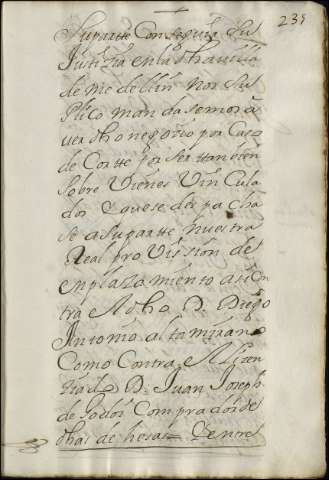 235
Suparte Conseguir Su
Justizia en la dha villa
de medellin nos Su
plico mandasemos a
uer dho negozio por Caso
de Cortte por ser tambien
sobre Vienes Vin Cula
dos Y que se des pa cha
se a Suparte nuestra
Real pro Vission de
enplazamiento asi Con
tra dho D. Diego
Antonio altamirano
Como Contra el lizen
ziado D. Juan Joseph
de Godoi Comprador de
dhas de hesas